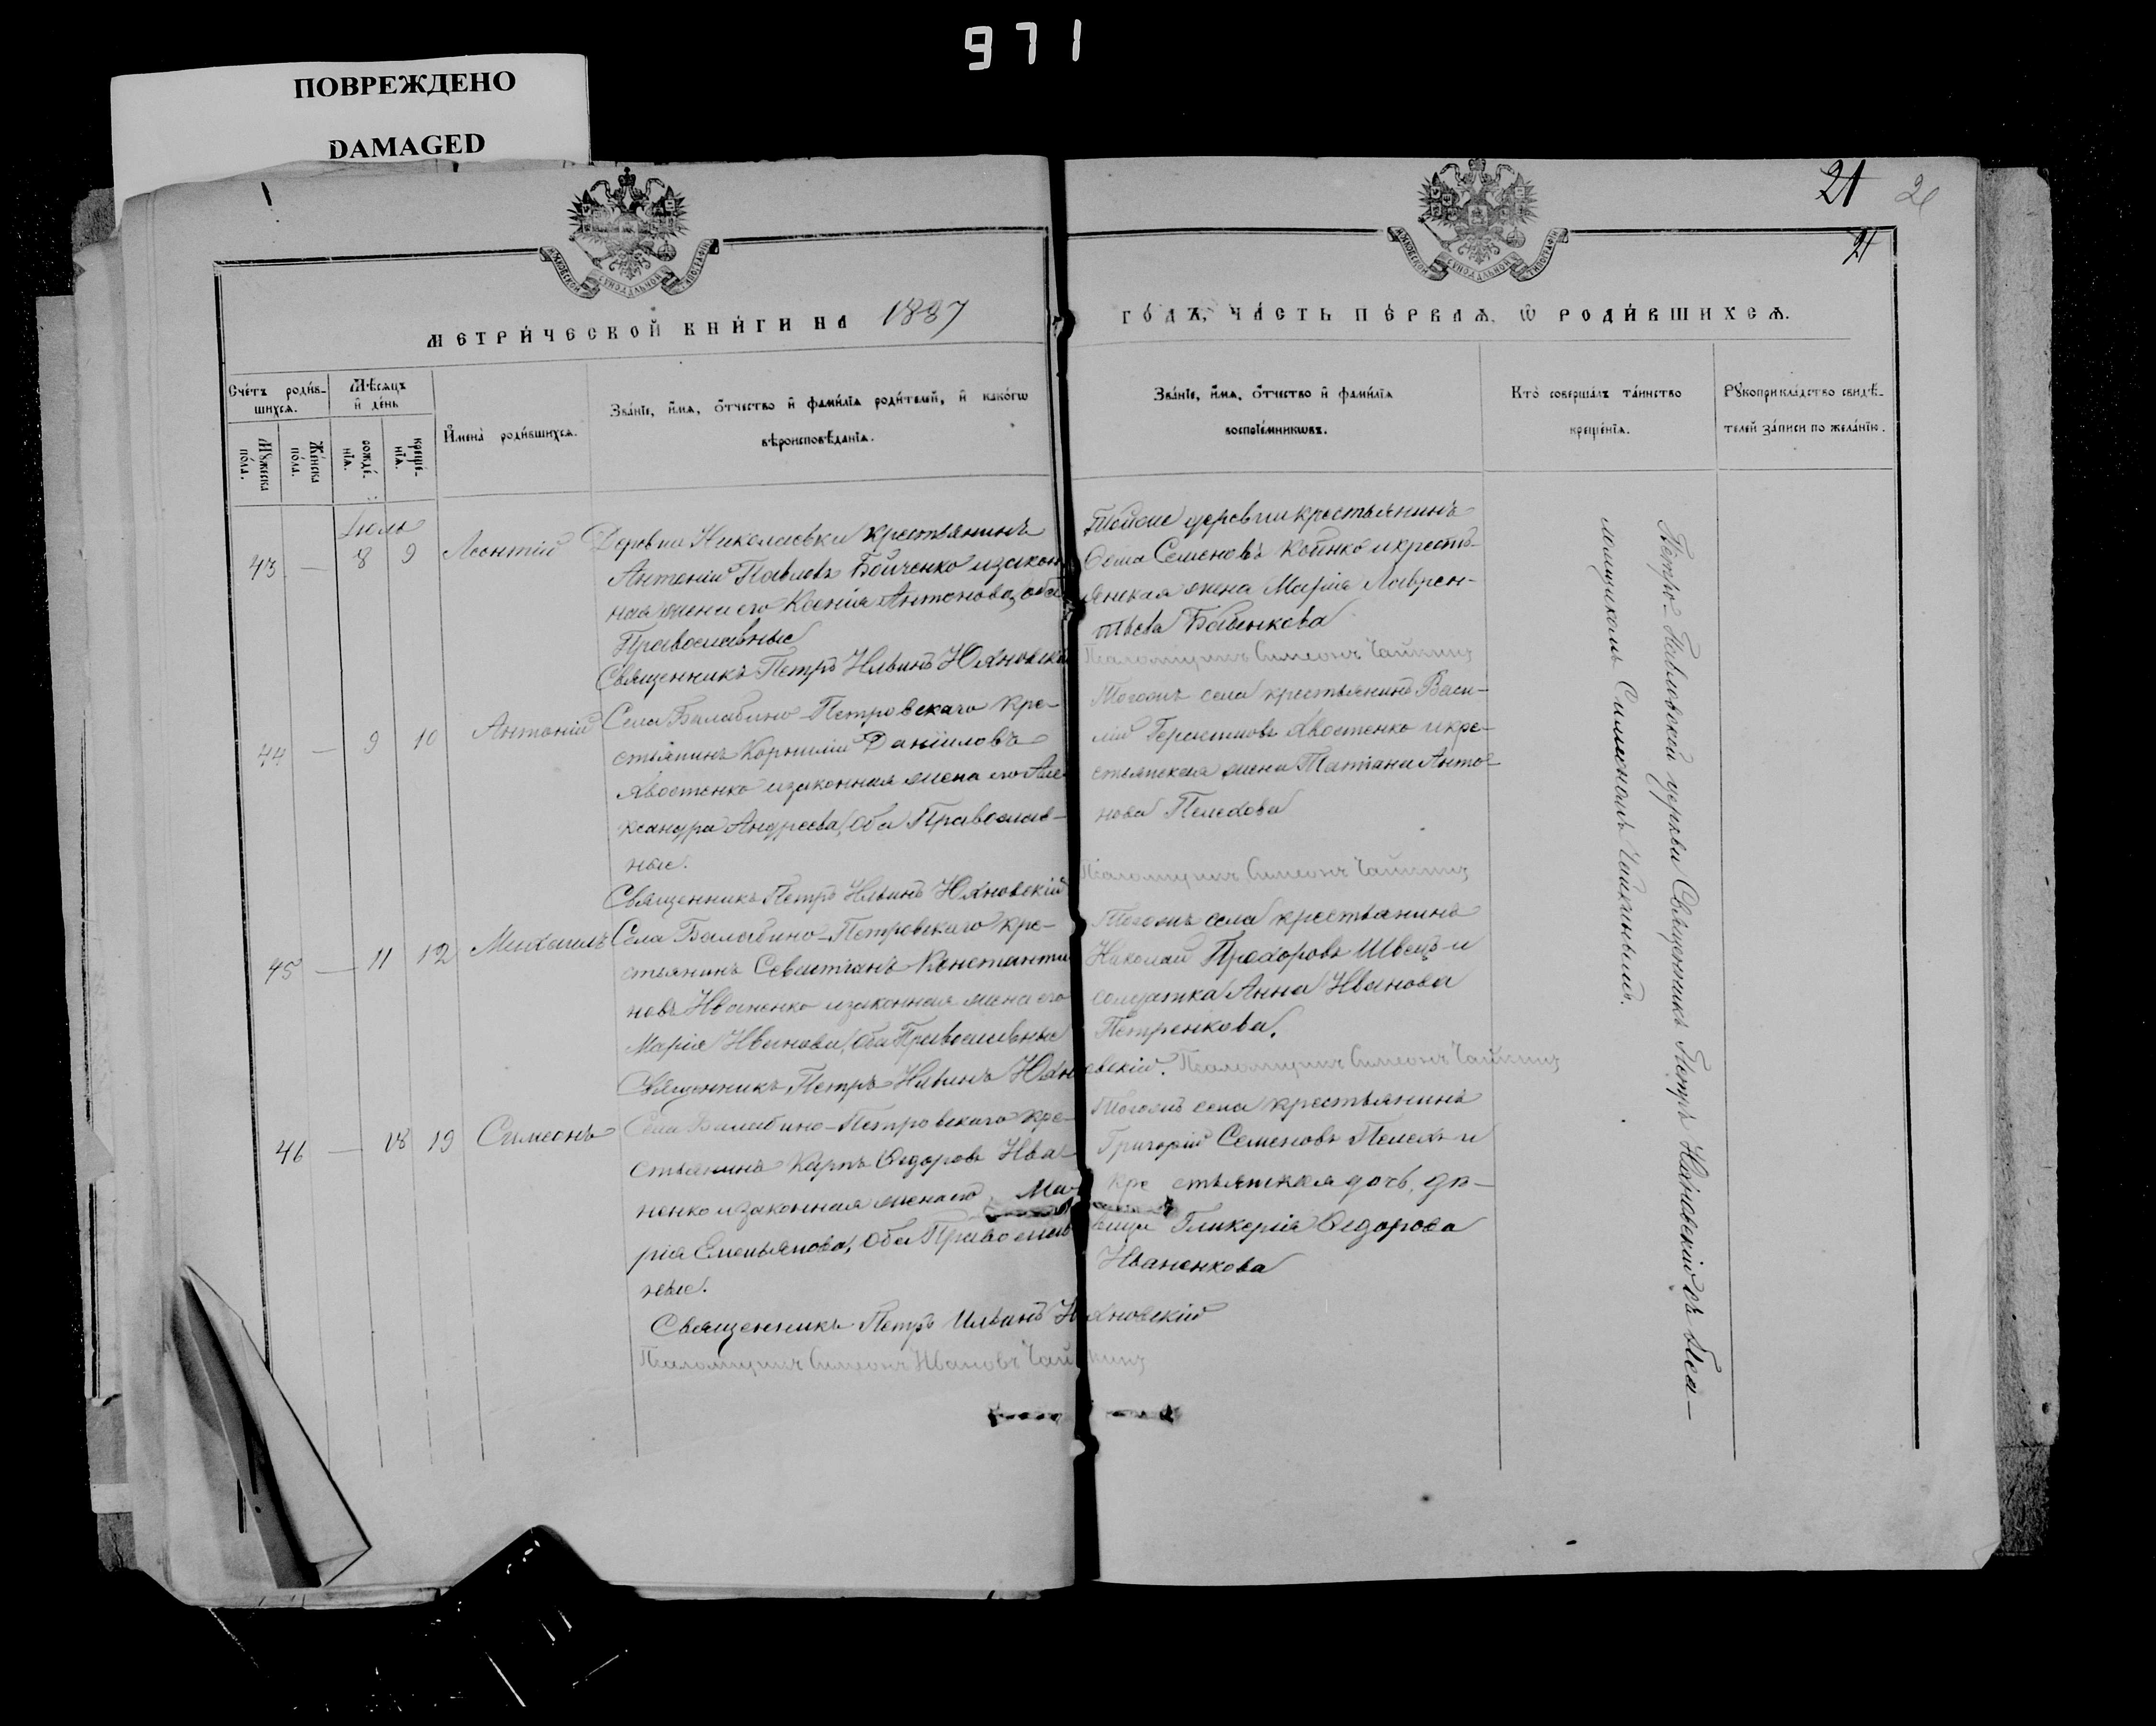 971
ПОВРЕЖДЕНО
DAMAGED
21 20
21
МЕТРИ́ЧЕСКОЙ КНИ́ГИ НА 1887
ГО́ДЪ, ЧА́СТЬ ПЕ́РВАѦ, Ѡ҆ РОДИ́ВШИХСѦ.
Сче́тъ роди́в-
шихсѧ.
Мꙋ́жеска
по́ла.
Же́нска
по́ла.
Мѣ́сѧцъ
и҆ де́нь
рожде́-
нїѧ.
креще́-
нїѧ.
И҆мена̀ роди́вшихсѧ.
Зва́нїе, и҆́мѧ, о҆́тчество и҆ фами́лїѧ роди́телей, и҆ како́гѡ
вѣроисповѣ́данїѧ.
Зва́нїе, и҆́мѧ, о҆́тчество и҆ фами́лїѧ
воспрїе́мникѡвъ.
Кто̀ соверша́лъ та́инство
креще́нїѧ.
Рꙋкоприкла́дство свидѣ́-
телей за́писи по жела́нїю.
Іюль
43 — 8 9 Леонтій
Деревни Николаевки крестьянинъ
Антоній Павловъ Бойченко и закон
ная жена его Ксенія Антонова, оба
Православные
Священникъ Петръ Ильинъ Юхновскій
Тойже деревни крестьянинъ
Фома Семеновъ Койнко и кресть-
янская жена Марія Лаврен-
тьева Бабенкова
Псаломщикъ Симеонъ Чайкинъ
44 — 9 10 Антоній
Села Балабино-Петровскаго кре-
стьянинъ Корнилій Даніиловъ
Хвостенко и законная жена его Але
ксандра Андреева, оба Православ-
ные.
Священникъ Петръ Ильинъ Юхновскій
Тогожъ села крестьянинъ Васи-
лій Герасимовъ Хвостенко и кре-
стьянская жена Татіана Анто-
нова Пелехова
Псаломщикъ Симеонъ Чайкинъ
45 — 11 12 Михаилъ
Села Балабино-Петровскаго кре-
стьянинъ Севастіанъ Константи
новъ Иваненко и законная жена его
Марія Иванова, оба Православные
Священникъ Петръ Ильинъ Юхновскій. Псаломщикъ Симеонъ Чайкинъ
Тогожъ села крестьянинъ
Николай Прохоровъ Швецъ и
солдатка Анна Иванова
Петренкова.
46 — 18 19 Симеонъ
Села Балабино-Петровскаго кре-
стьянинъ Карпъ Ѳедоровъ Ива-
ненко и законная жена его Ма-
рія Емельянова, оба Православ
ные.
Священникъ Петръ Ильинъ Юхновскій
Псаломщикъ Симеонъ Ивановъ Чайкинъ
Тогожъ села крестьянинъ
Григорій Семеновъ Пелехъ и
кре стьянская дочь, дѣ-
вица Гликерія Ѳедорова
Иваненкова
Петро-Павловской церкви Священникъ Петръ Юхновскій съ Пса-
ломщикомъ Симеономъ Чайкинымъ.